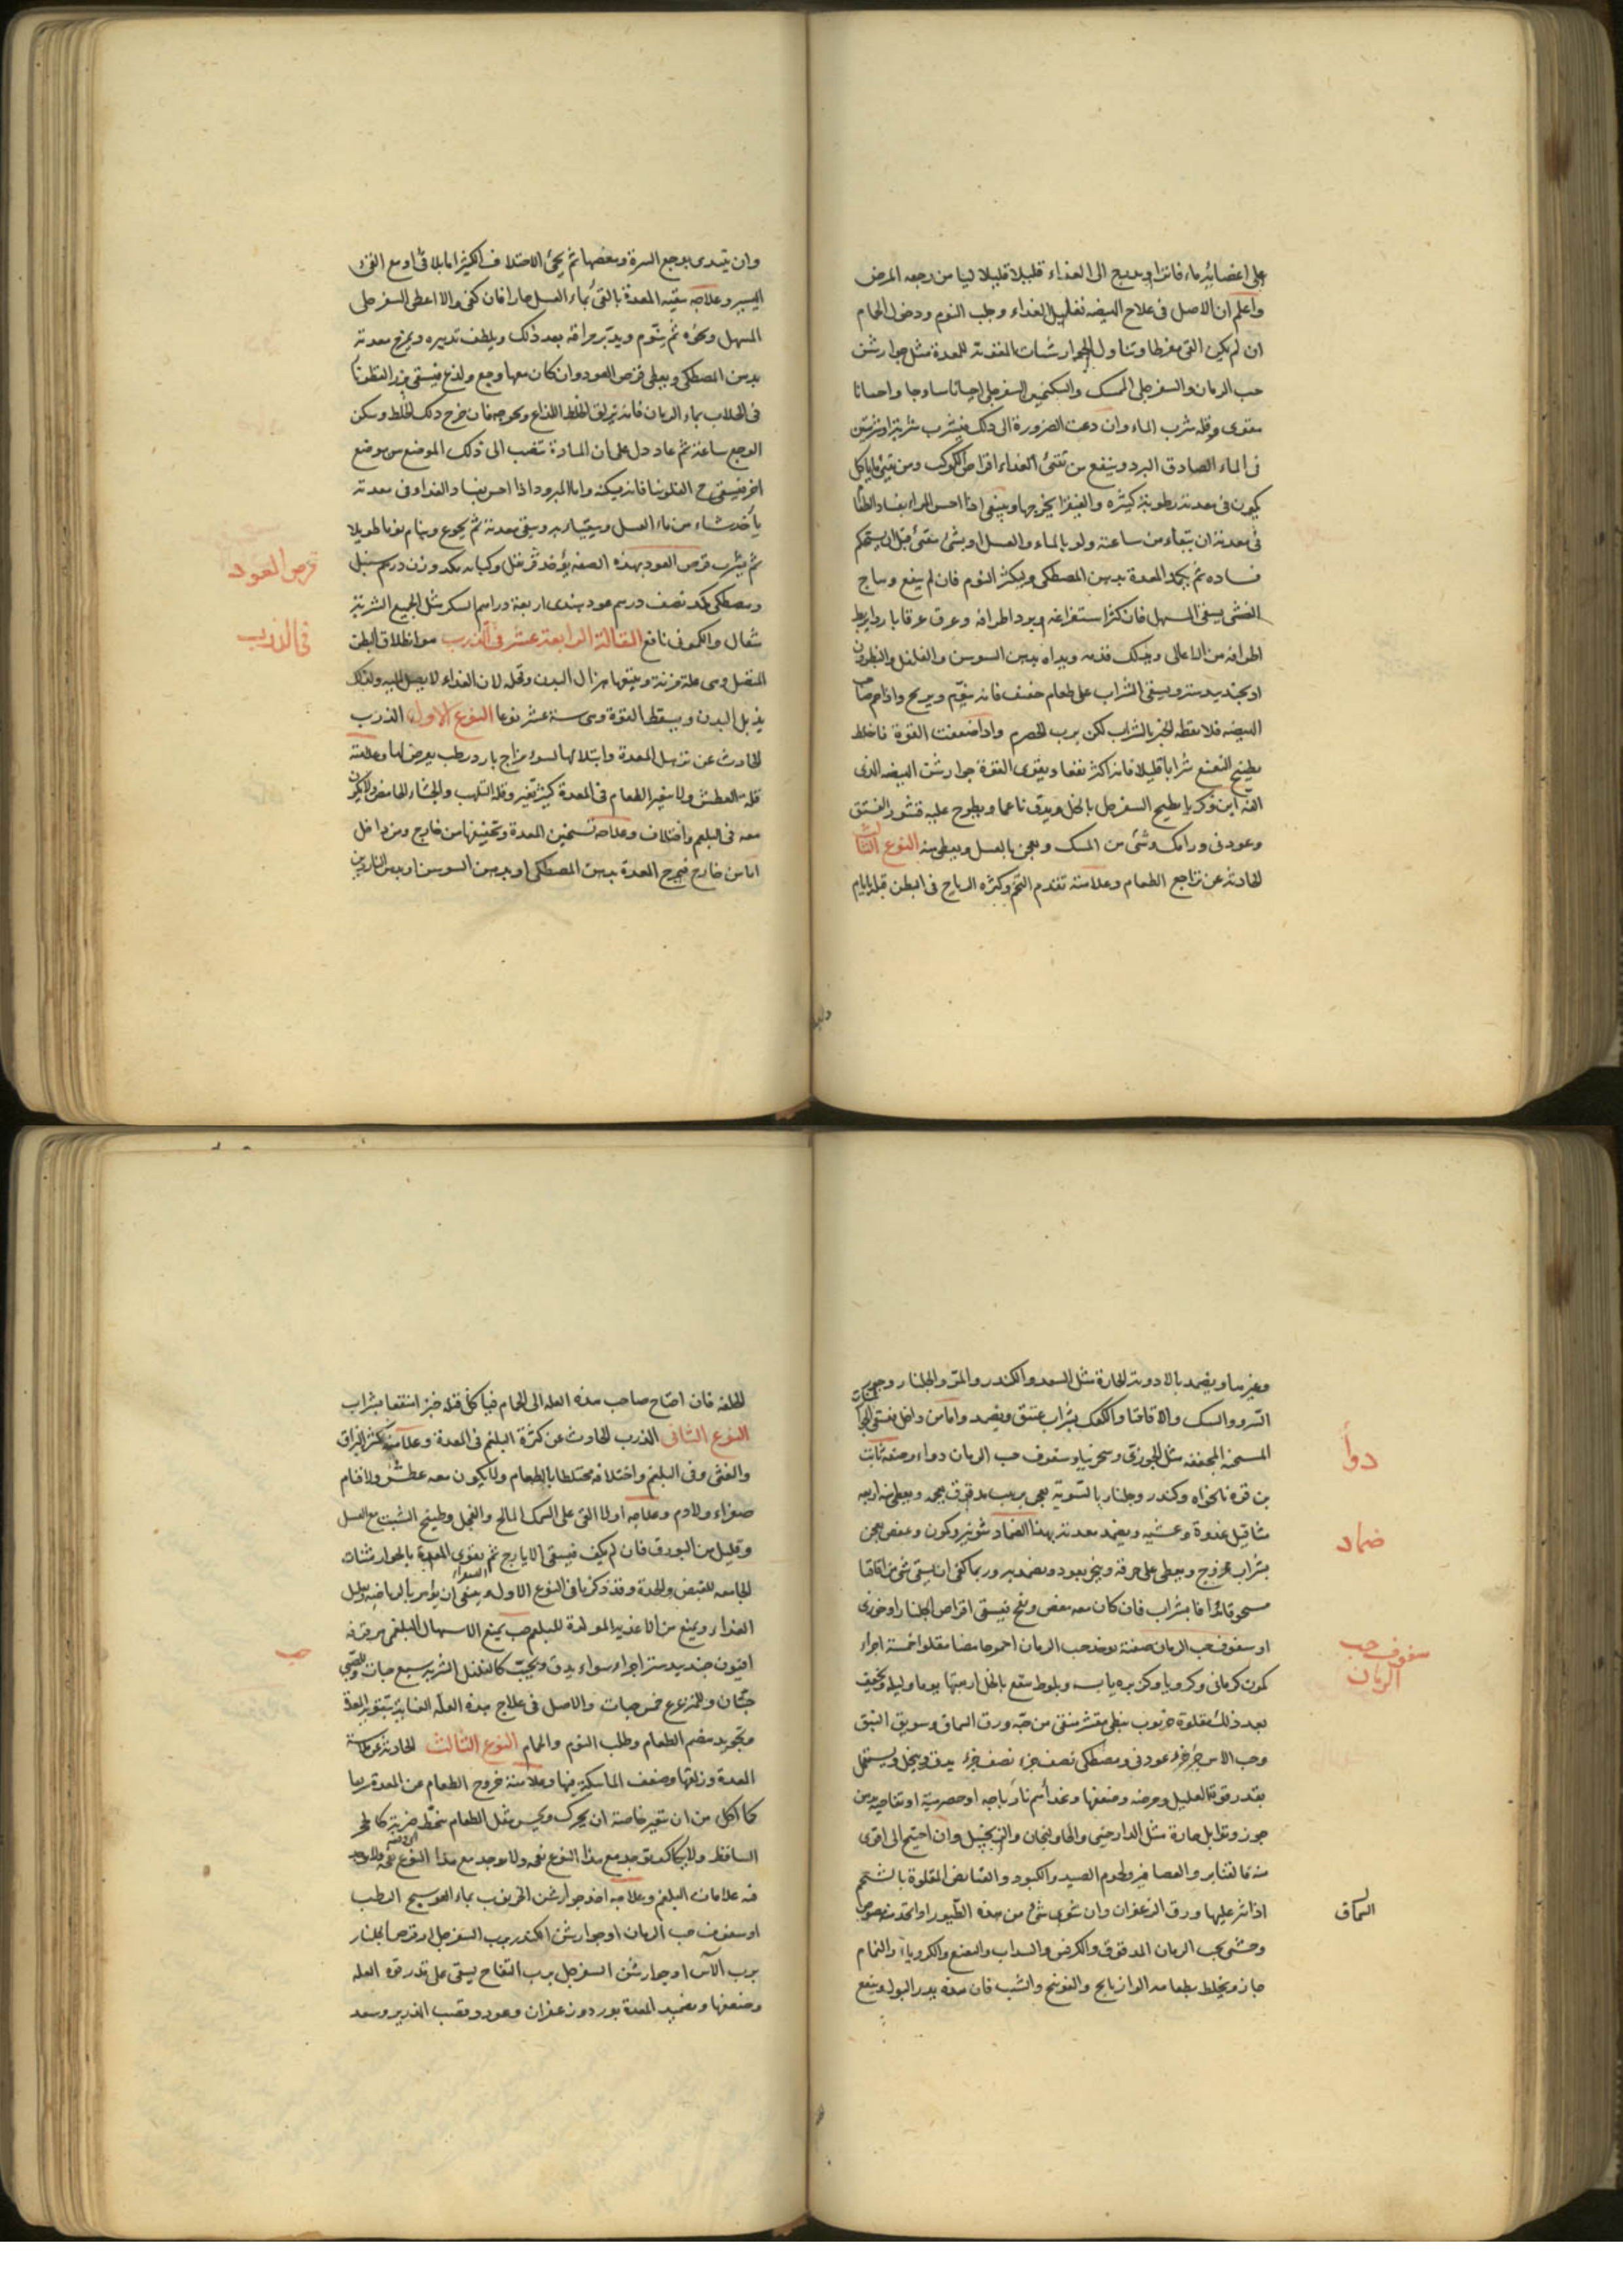 على اعضائه ماء فاترا ويدرج الى الغذاء قليلا قليلا ليا من رجعه المرض
واعلم ان الاصل فى علاج الهيضه تقليل الغذاء وطلب النوم ودخول الحمام
ان لم يكن القئ مفرطا وتناول الجوارشنات المقويه للمعدة مثل جوارشن
حب الرمان والسفرجلى الممسك والسكنجبين السفرجلى احيانا ساذجا واحيانا
مقوى وقله شرب الماء وان دعت الضرورة الى ذلك فيشرب شربة او شربتين
فى الماء الصادق البرد وينفع من تقئ الغذاء اقراص الكوكب ومن تقئ ما ياكل
يكون فى معدته رطوبة كثيره والفيقرا يخرجها وينبغى اذا احس المراء بفساد الطعام
فى معدته ان يتقاء من ساعته ولو بالماء والعسل او بشئ مقئ قبل ان يستحكم
فساده ثم يكمد المعدة بدهن المصطكى ويكثر النوم فان لم ينفع وهاج
الغشى يسقى المسهل فان كثر استفراغه وبرد اطرافه وعرق عرقا باردا يربط
اطرافه من الاعالى ويدلك قدمه ويداه بدهن السوسن والفلفل والنطرون
او بجندبيدستر ويسقى الشراب على طعام خفيف فانه ينوم ويريح واذا حم صاحب
الهيضه فلا تعطه الخبز بالشراب لكن برب الحصرم واذا ضعفت القوة فاخلط
بطبيخ النعنع شرابا قليلا فانه اكثر نفعا ويقوى القوة جوارشن الهيضه الذى
الفه ابن زكريا يطبخ السفرجل بالخل ويدق ناعما ويطرح عليه قشور الفستق
وعود نى ورامك وشئ من المسك ويعجن بالعسل ويعطى منه النوع الثالث
الحادثه عن تراجع الطعام وعلامته تقدم التخم وكثره الرياح فى البطن قبله بايام
وان يبتدى بوجع السرة ومغصها ثم يجئ الاختلاف الكثير اما بلا قئ او مع القئ
اليسير وعلاجه تنقيه المعدة بالقئ بماء العسل حارا فان كفى والا اعطى السفرجلى
المسهل ونحوه ثم ينوم ويدبر مراقه بعد ذلك ويلطف تدبيره ويمرخ معدته
بدهن المصطكى ويعطى قرص العود وان كان معها وجع ولذع فيسقى بزر القطونا
فى الجلاب بماء الرمان فانه يزلق الخلط اللذاع ويخرجه فان خرج ذلك الخلط وسكن
الوجع ساعة ثم عاد دل على ان المادة تنصب الى ذلك الموضع من موضع
اخر فيسقى ح الفلونيا فانه يسكنه واما المبرود اذا احس بفساد الغذاء فى معدته
يأخذ شاء من ماء العسل ويتقيا به وينقى معدته ثم يجوع وينام نوما طويلا
ثم يشرب قرص العود بهذه الصفه يؤخذ قرنفل وكبابه مكد وزن درهم سنبل
ومصطكى مكد نصف درهم عود هندى اربعة دراهم السكر مثل الجميع الشربة
مثقال والكمونى نافع المقالة الرابعة عشر فى الذرب هو انطلاق البطن
المتصل وهى علة مزمنة ويتبعها هزال البدن وقحله لان الغذاء لا يصل اليه ولذلك
يذبل البدن ويسقط القوة وهى ستة عشر نوعا النوع الاول الذرب
الحادث عن ترهل المعدة وابتلالها لسوء مزاج بارد رطب يعرض لها وعلامته
قله العطش ولا يتغير الطعام فى المعدة كثير تغير وقله التلهب والجشاء الحامض ولا يكون
معه فى البلغم واختلاف وعلاجه تسخين المعدة وتجفيفها من خارج ومن داخل
اما من خارج فيمرخ المعدة بدهن المصطكى او بدهن السوسن او بدهن الناردين
قرص العود
فى الذرب
وغيرها ويضمد بالادوية الحارة مثل السعد والكندر والمر والجلنار وجوز
السرو والسك والاقاقيا والكعك بشراب عتيق ويضمد واما من داخل فيسقى الجوارشنات
المسخنه المجففه مثل الخوزى وسحرنيا وسفوف حب الرمان دواء وصفه ثابت
بن قره نانخواه وكندر وجلنار بالسويه يعجن بزبيب مدقوق بعجمه ويعطى منه اربعه
مثاقيل غدوة وعشيه ويضمد معدته بهذا الضماد شونيز وكمون وعفص يعجن
بشراب ممزوج ويطلى على خرقه ويبخر بعود ويضمد به وربما كفى ان يسقى شئ من اقاقيا
مسحوقا مدافا بشراب فان كان معه مغص ونفخ فيسقى اقراص الجلنار او خوزى
او سفوف حب الرمان صفته يوخذ حب الرمان احمر حامضا مقلوا خمسة اجزاء
كمون كرمانى وكرويا وكزبره يابسه وبلوط منقع بالخل اربعتها يوما وليله ويجفف
بعد ذلك مقلوة خرنوب نبطى مقشر منقى من حبه ورق السماق وسويق النبق
وحب الاس جزء جزء عود نى ومصطكى نصف جزء نصف جزء يدق وينخل ويستعمل
بقدر قوة العليل ومرضه وضعفها وغذاء هم نارباجه او حصرميه او تفاحيه بدهن
جوز وتوابل حارة مثل الدارچينى والخاولنجان والزنجبيل وان احتيج الى اقوى
منه فالقنابر والعصافير ولحوم الصيد والكبود والقنابض المقلوة بالشحم
اذا نثر عليها ورق الزعفران وان شوى شئ من هذه الطيور او اتخذت مصوصا
وحشى بحب الرمان المدقوق والكرفس والسداب والنعنع والكروياء والنمام
جاز ويخلط بطعامه الرازيانج والفوتنج والشبت فان هذه يدر البول وينفع
دوأ
ضماد
سفوف حب
الرمان
السماق
الخلفه فان احتاج صاحب هذه العله الى الحمام فياكل قبله خبز انقعا بشراب
النوع الثانى الذرب الحادث عن كثرة البلغم فى المعدة وعلامته كثرة البزاق
والغثى وقى البلغم واختلافه مختلطا بالطعام ولا يكون معه عطش ولا قيام
صفراء ولا دم وعلاجه اولا القئ على السمك المالح والفجل وطبيخ الشبت مع العسل
وقليل من البورق فان لم يكف فيسقى الايارج ثم يقوى المعدة بالجوارشنات
الجامعه للقبض والحدة وقد ذكرنا فى النوع الاول وينبغى ان يؤمر بالرياضه وتقليل
الغذاء ويمنع من الاغذيه المولدة للبلغم حب يمنع الاسهال البلغمى مرقزفه
افيون جندبيدستر اجزاء سواء يدق ويحبب كالفلفل الشربة سبع حبات وللصبى
حبتان وللمترعرع خمس حبات والاصل فى علاج هذه العله العنايه بتقويه المعدة
وتجويد هضم الطعام وطلب النوم والحمام النوع الثالث الحادث عن ملاسة
المعدة وزلقها وضعف الماسكة فيها وعلامته خروج الطعام عن المعدة ربما
كما اكل من ان يتغير خاصة ان تحرك ويحس بثقل الطعام ينحط ضربة كالحجر
الساقط ولا يكاد يوجد مع هذا النوع نفخه ولا يوجد مع هذا النوع
فيه علامات البلغم وعلاجه اخذ جوارشن الخرنوب بماء العوسج الرطب
او سفوف حب الرمان او جوارشن الكندر برب السفرجل او قرص الجلنار
برب الآس او جوارشن السفرجل برب التفاح يسقى على قدر قوة العله
وضعفها ويضمد المعدة بورد وزعفران وعود وقصب الذريره وسعد
حب